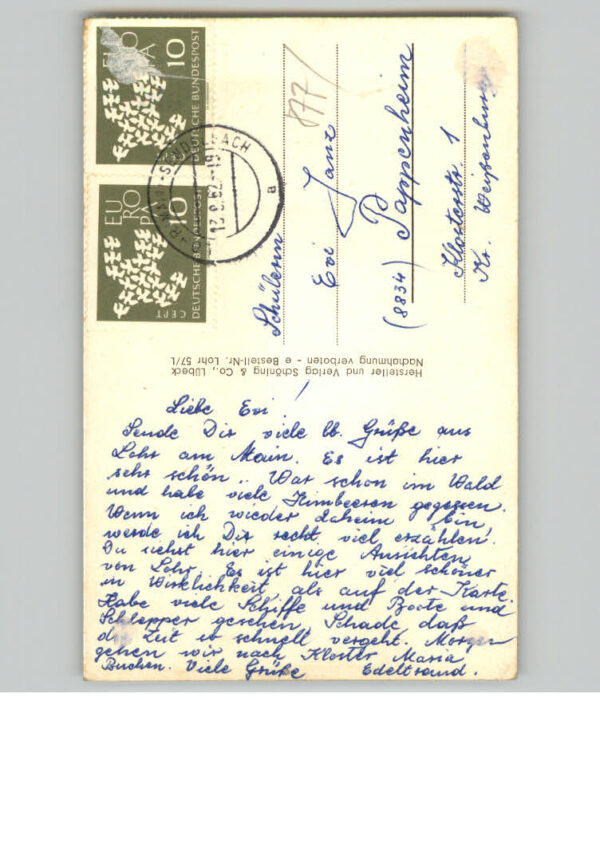 EUROPA
10
DEUTSCHE BUNDESPOST
EUROPA
10
DEUTSCHE BUNDESPOST
CEPT
13.8.62.-19
a
877/
Schülerin
Evi Janz
(8834) Pappenheim
Klosterstr. 1
Kr. Weißenburg
Hersteller und Verlag Schöning & Co., Lübeck
Nachahmung verboten - e Bestell-Nr. Lohr 57/L
Liebe Evi!
Sende Dir viele lb. Grüße aus
Lohr am Main. Es ist hier
sehr schön.. War schon im Wald
und habe viele Himbeeren gegessen.
Wenn ich wieder daheim bin,
werde ich Dir recht viel erzählen!
Du siehst hier einige Ansichten
von Lohr. Es ist hier viel schöner
in Wirklichkeit, als auf der Karte.
Habe viele Schiffe und Boote und
Schlepper gesehen. Schade, daß
die Zeit so schnell vergeht. Morgen
gehen wir nach Kloster Maria
Buchen. Viele Grüße Edeltraud.